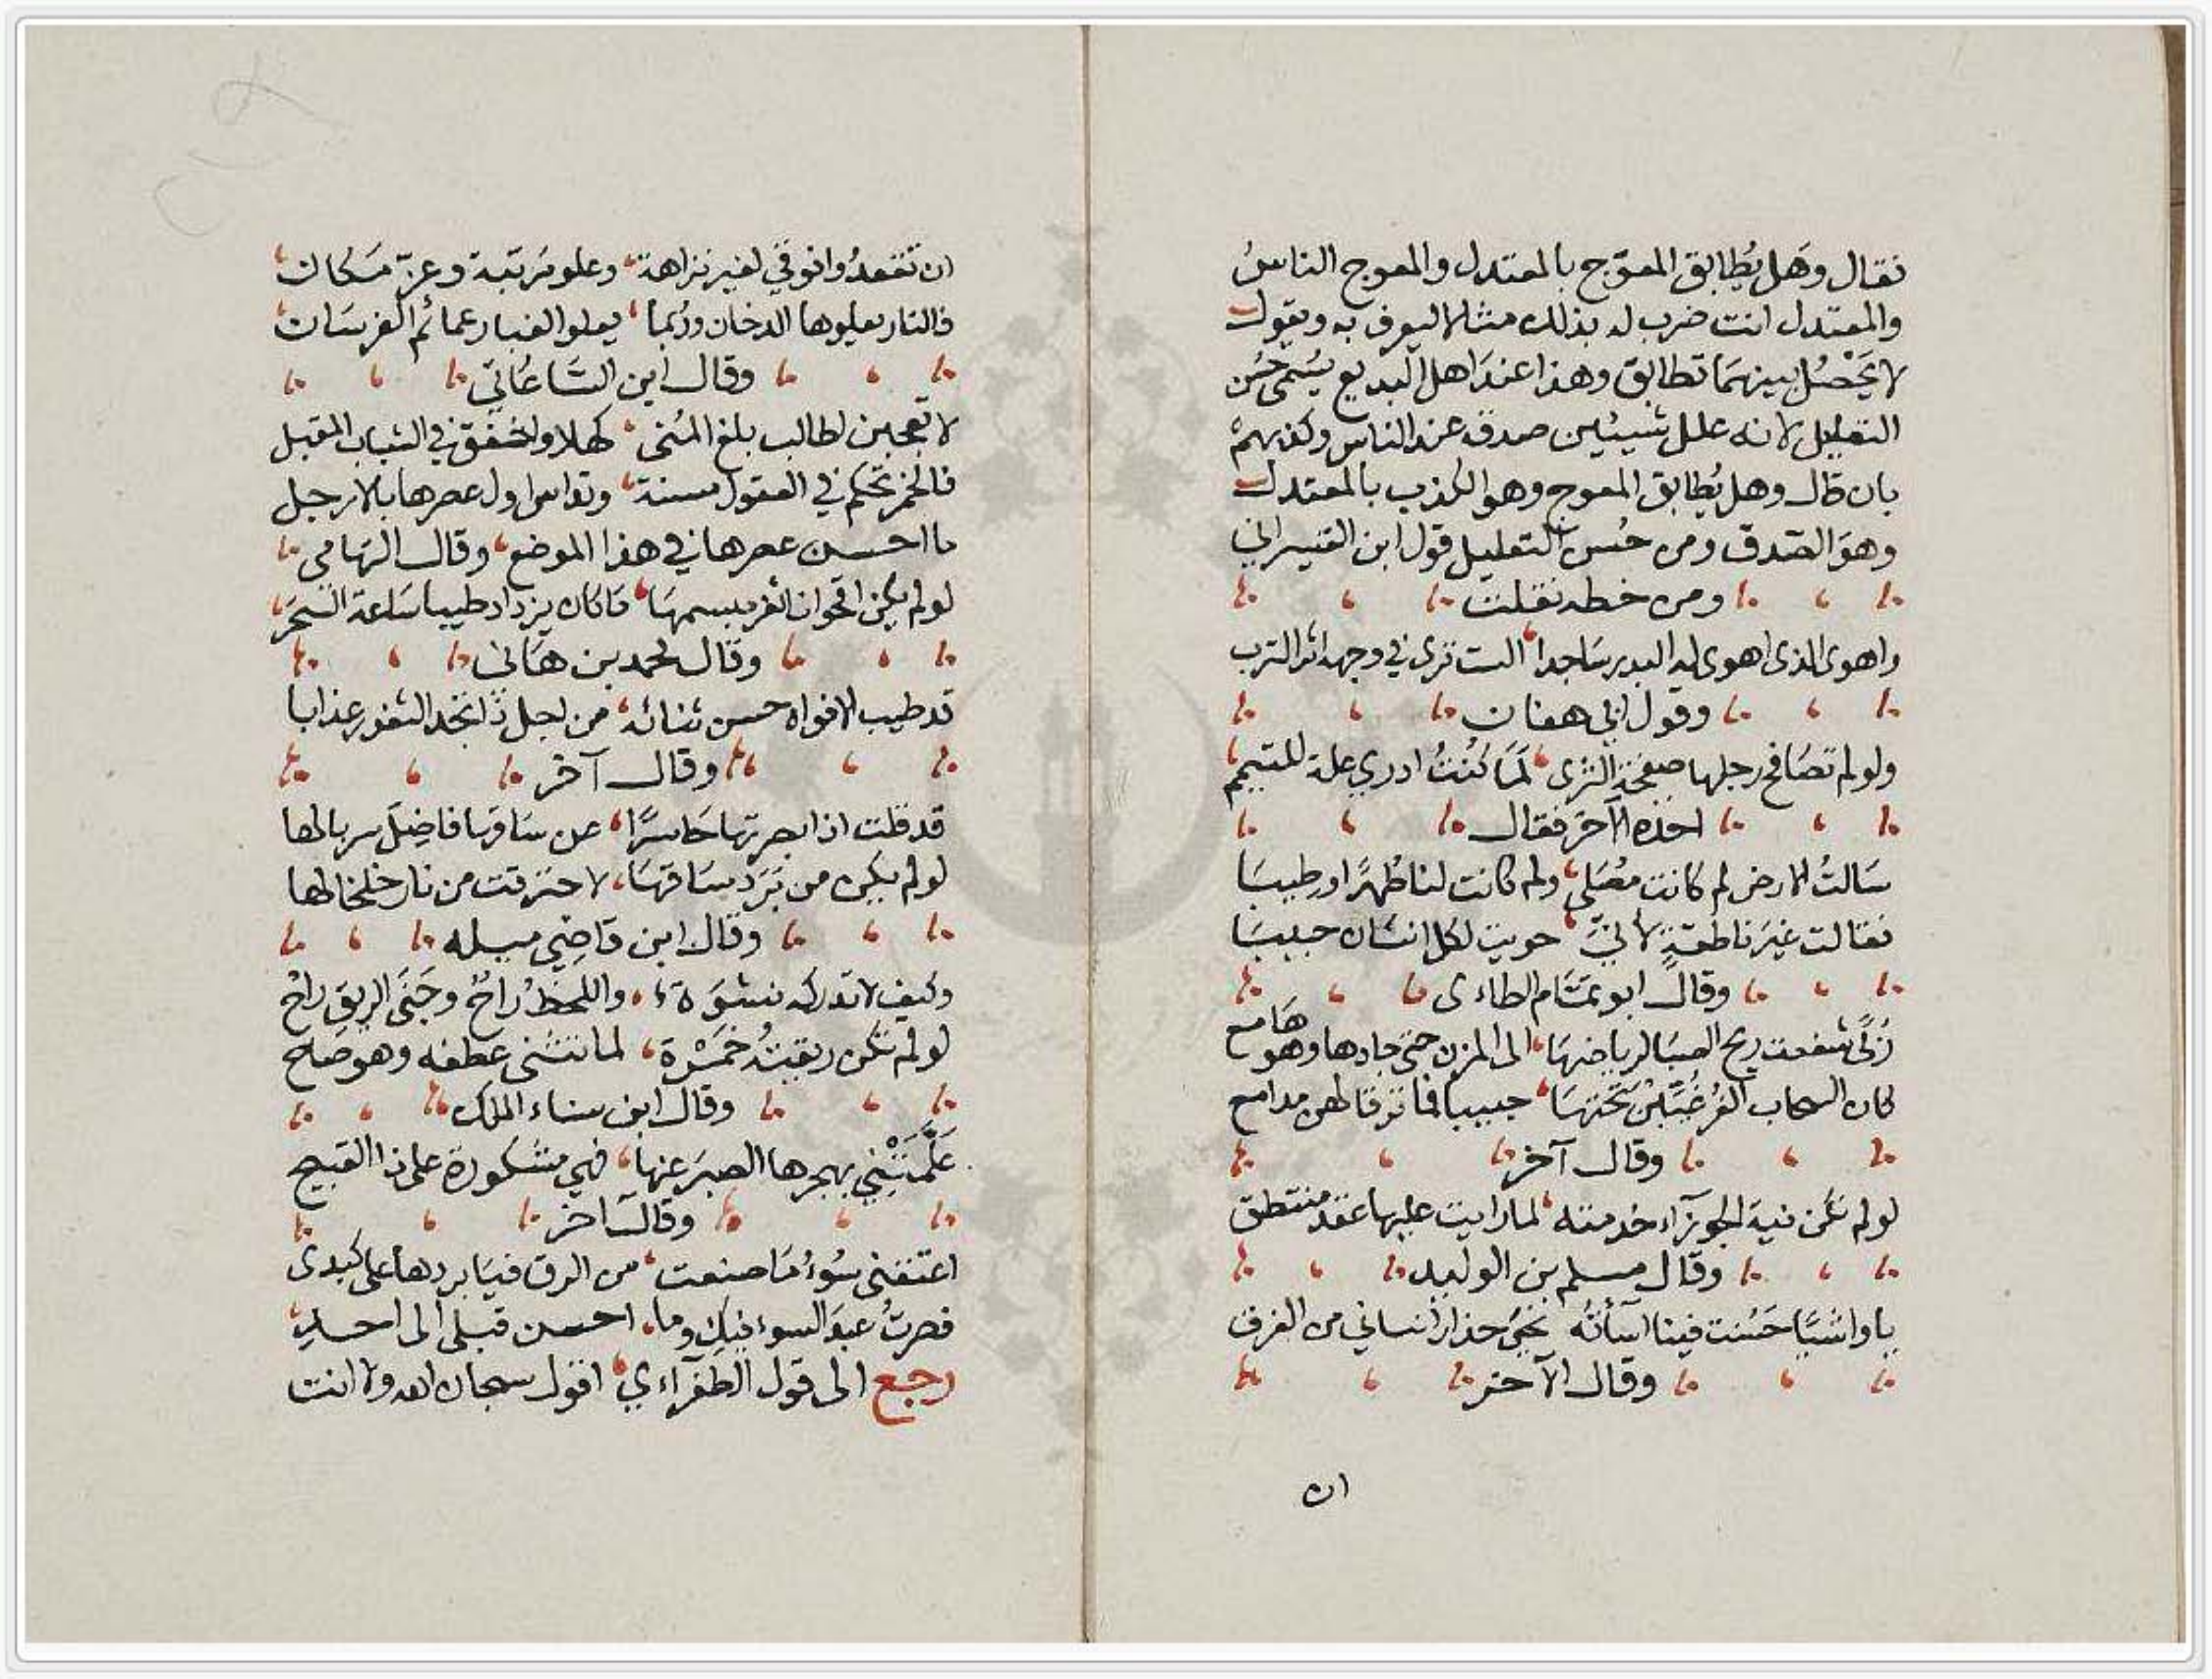 فقال وهل يُطابق المعوّج بالمعتدل والمعوج الناسُ
والمعتدل انت ضرب له بذلك مثلا ليعرف به ويقول
لا يَحْصُل بينهمَا تطابق وهذا عندَ اهل البديع يسُمى حُسن
التعليل لانه علل شيئين صدقه عند الناس وكذبهمْ
بان قال وهل يُطابق المعوج وهو الكذب بالمعتدل
وهوَ الصّدق ومن حُسن التعليل قول ابن القيسراني
ومن خطه نقلت
واهوى الذي اهوى له البدر سَاجدا الست ترى في وجهه اثر الترب
وقول ابي هفان
ولو لم تصَافح رجلها صفحة الثرى لمَا كُنْتُ ادري علة للتيمم
اخذه الآخر فقال
سَالتُ الارض لم كانت مصَلى ولم كانت لنا طُهرًا وطِيبَا
فقالت غيَر ناطقةٍ لانيّ حويت لكل انسَان حبيبَا
وقال ابو تمّام الطاءى
رُبًى شفعت ريح الصبَا لرياضهَا الى المزن حتى جادها وهو هَامع
كان السحاب الغُرَّ غُيَّبْنَ تحتهَا حبيبا فما ترقا لهن مدامع
وقال آخر
لو لم تكن نية الجوزاء خدمته لما رايت عليها عقد منتطق
وقال مسلم بن الوليد
يا واشيًا حَسُنت فينا اسَأتُه نجىَّ حذارك انساني من الغرق
وقال الآخر
ان
ان تقعدُوا فوقي لغير نزاهة وعلو مَرتبة وعزّ مَكان
فالنار يعلوها الدخان ورُبما يعلوا الغبار عمائم الفرسَان
وقال ابن السَّاعَاتي
لا تعجبن لطالب بلغ المُنى كهلا واخفق في الشباب المقبل
فالخمر تحكم في العقول مسنة وتداس اول عصرها بالارجل
ما احسن عصرها في هذا الموضع وقال التهامي
لو لم يكن اقحوانا ثغر مبسمهَا مَا كان يزداد طيبا سَاعة السَّحَر
وقال محمد بن هَانى
قد طيب الافواه حسن ثنائه من اجل ذا تجد الثغور عذابا
وقال آخر
قد قلت اذ ابصرتها حَاسرًا عن سَاقهَا فاضِلَ سربالها
لو لم يكن من بَرَد سَاقهَا لاحترقت من نار خلخالها
وقال ابن قاضِي ميله
وكيف لا تدركه نشوَة واللحظ رَاحٌ وجَنَى الريقِ راحْ
لو لم تكن ريقتُه خمْرة لما تثنى عطفه وهو صَاح
وقال ابن سناء الملك
عَلَّمَتْنِي بهجرها الصبرَ عنها فهي مشكورة على ذا القبيح
وقال آخر
اعتقني سُوءُ مَا صنعت من الرق فيَا بردها على كبدى
فصرتُ عبدَ السوء فيك وما احسن قبلى الى احد
رجع الى قول الطغراءي اقول سبحان الله ولا انت